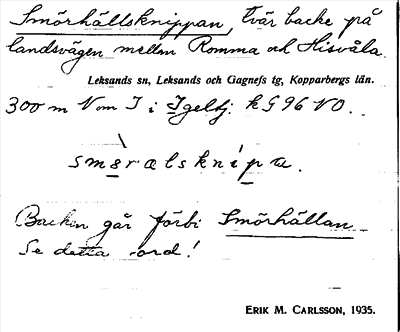 Smörhällsknippan, tvär backe på
landsvägen mellan Romma och Hisvåla.
Leksands sn, Leksands och Gagnefs tg, Kopparbergs län.
300 m V om I i Igeltj. k G 96 NO.
Backen går förbi Smörhällan
Se detta ord!
ERIK M. CARLSSON, 1935.